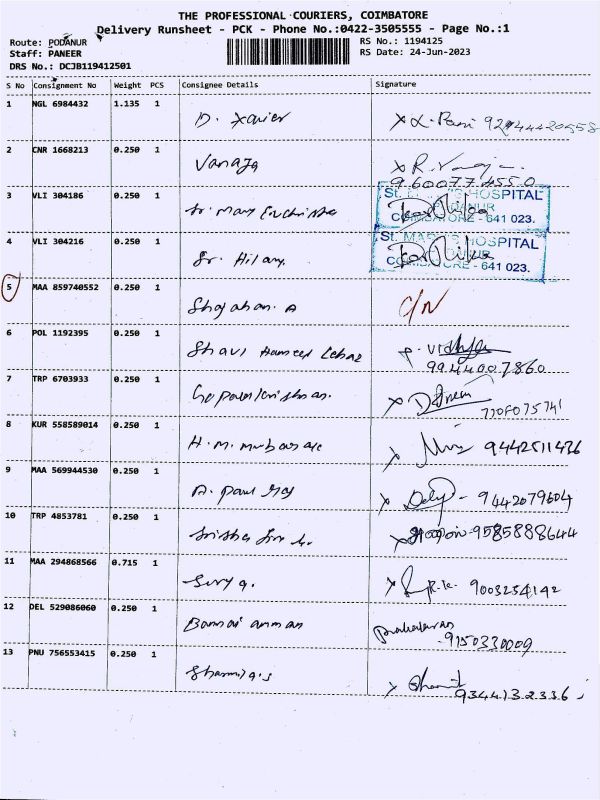 THE PROFESSIONAL COURIERS, COIMBATORE
Delivery Runsheet - PCK - Phone No.:0422-3505555 - Page No.:1
Route: PODANUR RS No.: 1194125
Staff: PANEER RS Date: 24-Jun-2023
DRS No.: DCJB119412501
S No Consignment No Weight PCS Consignee Details Signature
1 NGL 6984432 1.135 1 D. Xavier
2 CNR 1668213 0.250 1 Vanaja 9600774550
3 VLI 304186 0.250 1 Sr. Mary HOSPITAL
COIMBATORE - 641 023.
4 VLI 304216 0.250 1 Sr. Hilary ST. MARY'S HOSPITAL
COIMBATORE - 641 023.
5 MAA 859740552 0.250 1 Shajahan. A C/N
6 POL 1192395 0.250 1 Shavl Hameed
9944007860
7 TRP 6703933 0.250 1 Gopalakrishnan.
8 KUR 558589014 0.250 1 H. M. Mubarak 9442511436
9 MAA 569944530 0.250 1 A. Paul Raj 9442079604
10 TRP 4853781 0.250 1 9585888644
11 MAA 294868566 0.715 1 Surya. 9003254142
12 DEL 529086060 0.250 1 Bannai amman Prabakaran
9150330009
13 PNU 756553415 0.250 1 Sharmila.s
9344132336